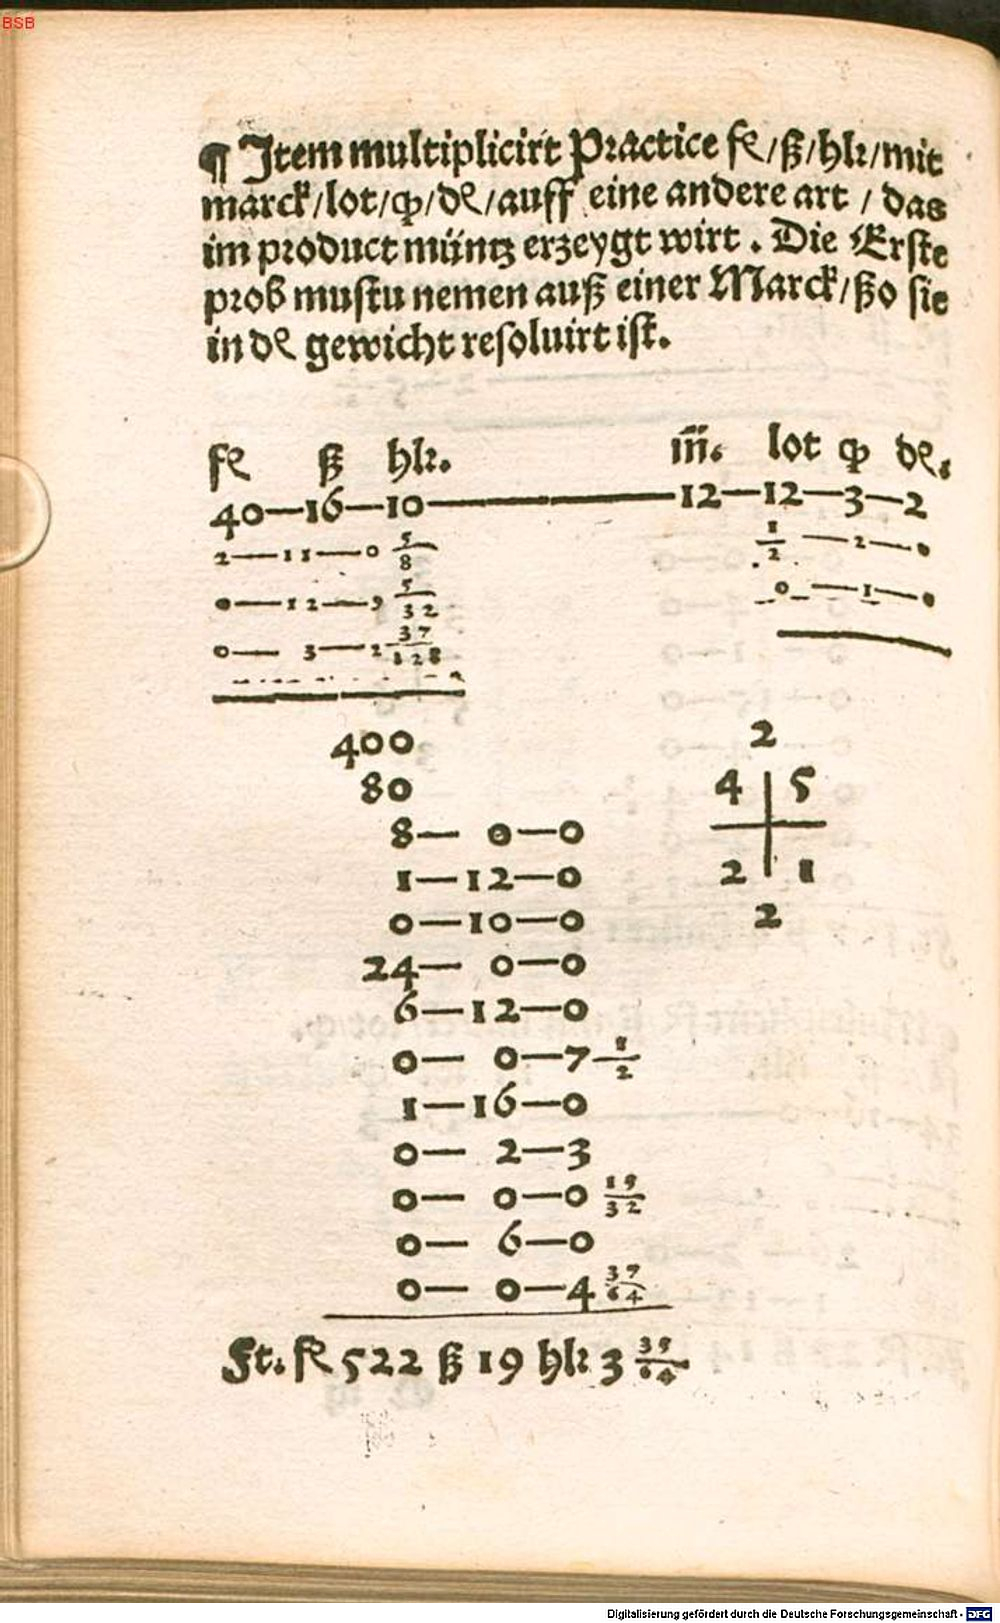 BSB
¶ Item multiplicirt Practice fl/ß/hlr/mit
marck/lot/qͥ/dℓ/auff eine andere art / das
im product müntz erzeygt wirt . Die Erste
prob mustu nemen auß einer Marck/ßo sie
in dℓ gewicht resoluirt ist.
fl ß hlr. m̃. lot q dℓ.
40—16—10—12—12—3—2
2—11—0 5/8 1/2—2—0
0—12—9 5/32 0—1—0
0—3—2 37/128
400 2
80 4 5
8—0—0
1—12—0 2 1
0—10—0 2
24—0—0
6—12—0
0—0—7—1/2
1—16—0
0—2—3
0—0—0 19/32
0—6—0
0—0—4 37/64
Ft. fl 522 ß 19 hlr 3 35/64
Digitalisierung gefördert durch die Deutsche Forschungsgemeinschaft - DFG